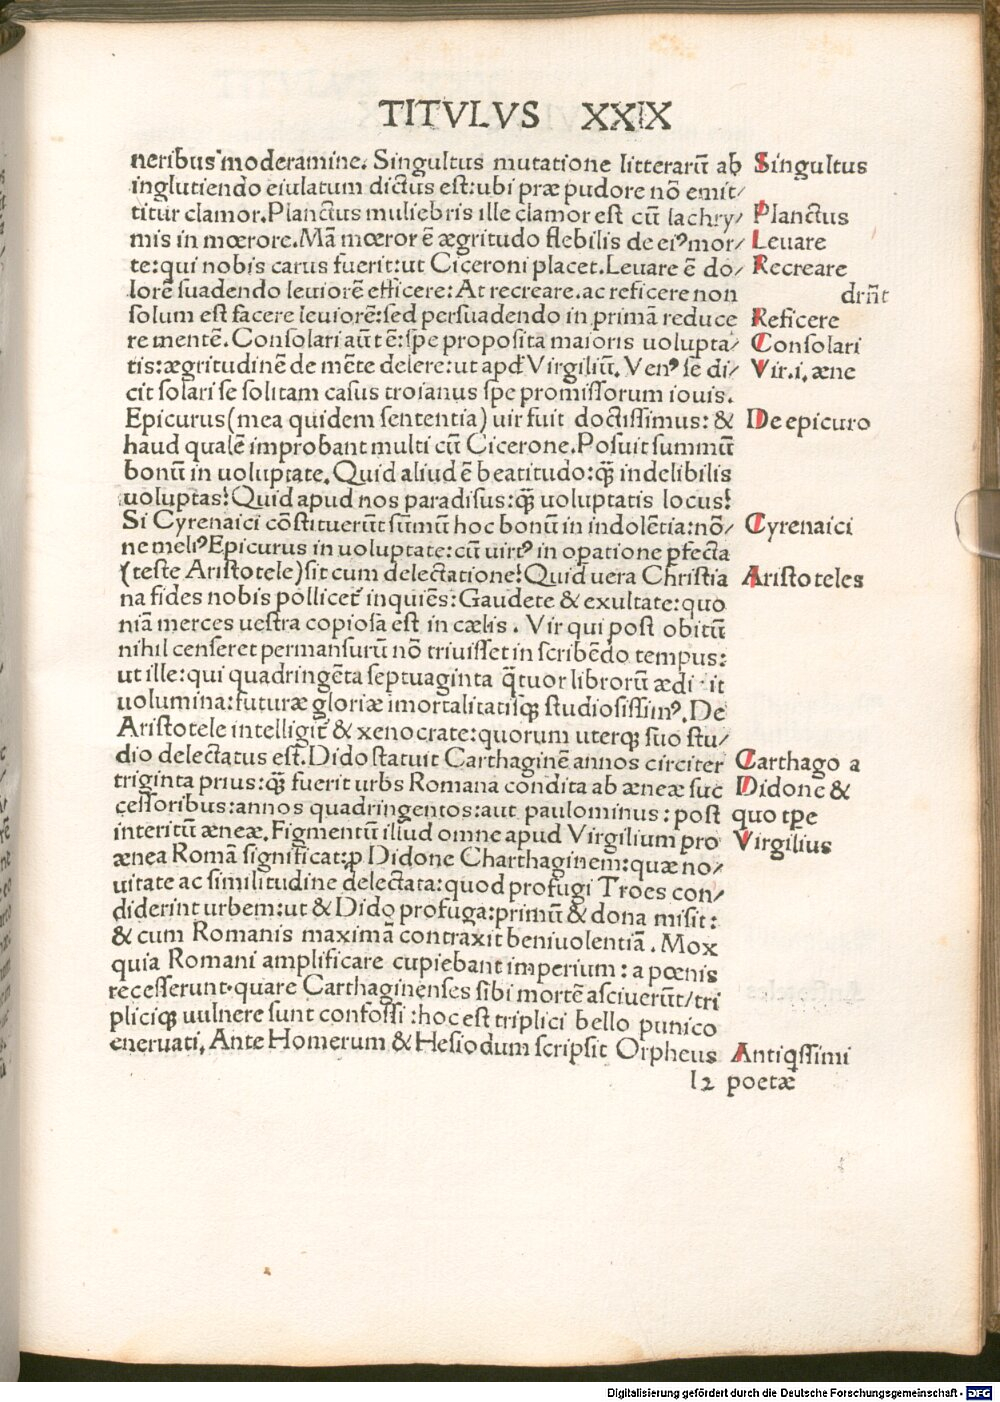 TITVLVS XXIX
neribus moderamine. Singultus mutatione litterarū ab Singultus
inglutiendo eiulatum dictus est: ubi præ pudore nō emit/
titur clamor. Planctus muliebris ille clamor est cū lachry/ Planctus
mis in mœrore. Mā mœror ē ægritudo flebilis de eiꝰ mor/ Leuare
te: qui nobis carus fuerit: ut Ciceroni placet. Leuare ē do/ Recreare
lorē suadendo leuiorē efficere: At recreare. ac reficere non drn̄t
solum est facere leuiorē: sed persuadendo in primā reduce Reficere
re mentē. Consolari aūt ē: spe proposita maioris uolupta/ Consolari
tis: ægritudinē de mēte delere: ut apd̓ Virgiliū. Venꝰ se di/ Vir. i. æne
cit solari se solitam casus troianus spe promissorum iouis.
Epicurus (mea quidem sententia) uir fuit doctissimus: & De epicuro
haud qualē improbant multi cū Cicerone. Posuit summū
bonū in uoluptate. Quid aliud ē beatitudo: q̄ꝫ indelibilis
uoluptas? Quid apud nos paradisus: q̄ꝫ uoluptatis locus?
Si Cyrenaici cōstituerūt sūmū hoc bonū in indolētia: nō/ Cyrenaici
ne meliꝰ Epicurus in uoluptate: cū uirtꝰ in opatione pfecta
(teste Aristotele) sit cum delectatione? Quid uera Christia Aristoteles
na fides nobis pollicet᷑ inquiēs: Gaudete & exultate: quo
niā merces uestra copiosa est in cælis. Vir qui post obitū
nihil censeret permansurū nō triuisset in scribēdo tempus:
ut ille: qui quadringēta septuaginta q̄tuor librorū ædi it
uolumina: futuræ gloriæ imortalitatisqꝫ studiosissimꝰ. De
Aristotele intelligit᷑ & xenocrate: quorum uterqꝫ suo stu/
dio delectatus est. Dido statuit Carthaginē annos circiter Carthago a
triginta prius: q̄ꝫ fuerit urbs Romana condita ab æneæ suc Didone &
cessoribus: annos quadringentos: aut paulominus: post quo tꝑe
interitū æneæ. Figmentū illud omne apud Virgilium pro Virgilius
ænea Romā significat: ꝓ Didone Charthaginem: quæ no/
uitate ac similitudine delectata: quod profugi Troes con/
diderint urbem: ut & Dido profuga: primū & dona misit:
& cum Romanis maximā contraxit beniuolentiā. Mox
quia Romani amplificare cupiebant imperium: a pœnis
recesserunt. quare Carthaginenses sibi mortē asciuerūt/ tri
pliciqꝫ uulnere sunt confossi: hoc est triplici bello punico
eneruati. Ante Homerum & Hesiodum scripsit Orpheus Antiqssimi
l2 poetæ
Digitalisierung gefördert durch die Deutsche Forschungsgemeinschaft - DFG